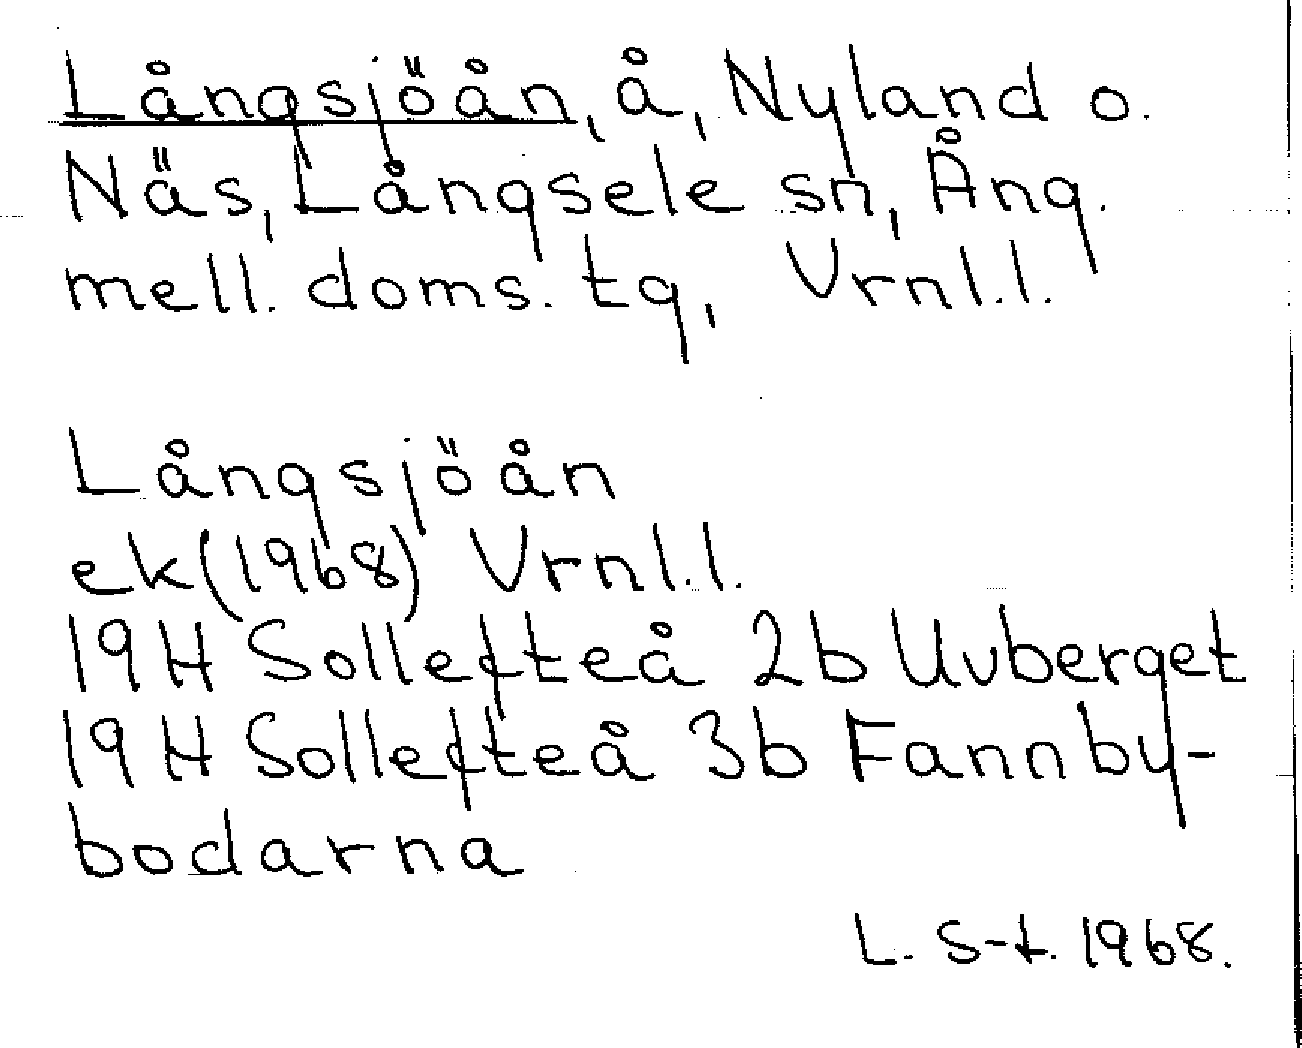 Långsjöån, å, Nyland o.
Näs, Långsele sn, Ång.
mell. doms. tg, Vrnl.l.
Långsjöån
ek(1968) Vrnl.l.
19H Sollefteå 2b Uvberget
19H Sollefteå 3b Fannby-
bodarna
L. S-t. 1968.